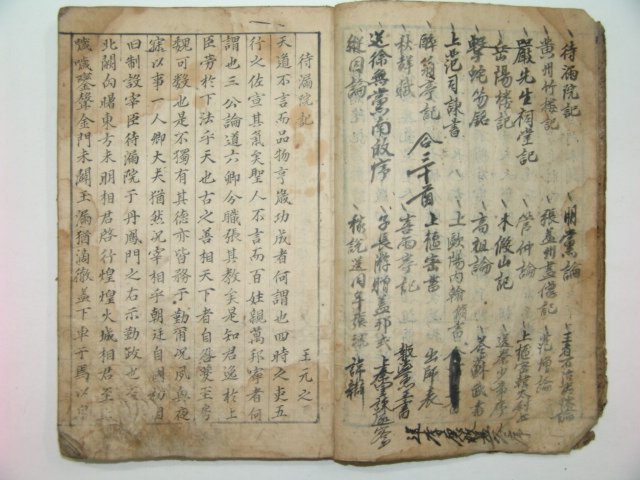 待漏院記 朋黨論
黃州竹樓記 張益州畫像記 王者不治夷狄論
嚴先生祠堂記 管仲論 范增論
岳陽樓記 木假山記 上樞密韓太尉書
擊蛇笏銘 高祖論 送秦少章序
上范司諫書 上歐陽內翰書 答蘇武書
醉翁亭記 合三十首 上樞密書 出師表
秋聲賦 喜雨亭記
送徐無黨南歸序 子長游贈蓋邦式
縱囚論 稼說送同年張琥
待漏院記 王元之
天道不言而品物亨歲功成者何謂也四時之吏五
行之佐宣其氣矣聖人不言而百姓親萬邦寧者何
謂也三公論道六卿分職張其教矣是知君逸於上
臣勞於下法乎天也古之善相天下者自咎夔至房
魏可數也是不獨有其德亦皆務于勤爾況夙興夜
寐以事一人卿大夫猶然況宰相乎朝廷自國初因
旧制設宰臣待漏院于丹鳳門之右示勤政也乃若
北闕向曙東方未明相君啓行煌煌火城相君至止
噦噦鑾聲金門未闢玉漏猶滴徹蓋下車于焉以息